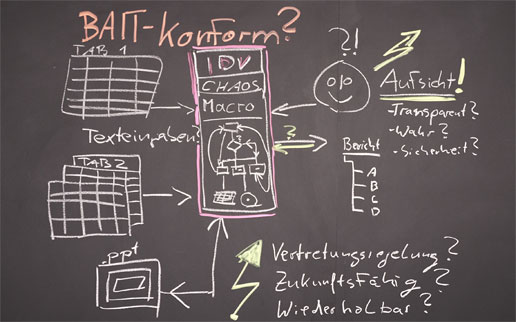 BAIT-Konform?
TAB 1
IDV
CHAOS
MACRO
?!
Aufsicht!
-Transparent?
-Wahr?
-Sicherheit?
Texteingaben?
?
Bericht
A
B
C
D
TAB 2
.ppt
Vertretungsregelung?
Zukunftsfähig?
Wiederholbar?